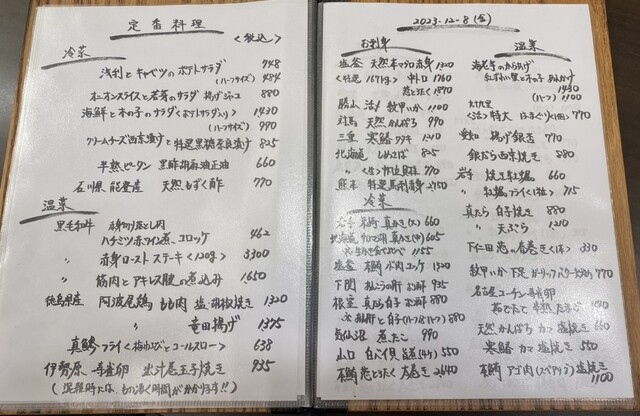 定番料理
<税込>
冷菜
浅利とキャベツのポテトサラダ 748
(ハーフサイズ) 484
オニオンスライスと若芽のサラダ 揚げジャコ 880
海鮮と木の子のサラダ(ポテトサラダ入り) 1430
(ハーフサイズ) 990
クリームチーズ西京漬けと特選黒糖奈良漬け 825
半熟ピータン 黒酢胡麻油正油 660
石川県 能登産 天然もずく酢 770
温菜
黒毛和牛 赤身切り落とし肉
ハチミツ赤ワイン煮 コロッケ 462
〃 赤身ローストステーキ<120g> 3300
〃 筋肉とアキレス腱の煮込み 1650
徳島県産 阿波尾鶏 もも肉 塩・胡椒焼き 1320
〃 竜田揚げ 1375
真鯵フライ<梅わさびとコールスロー> 638
伊勢原 寿雀卵 出汁尾玉子焼き 935
(混雑時には、もの凄く時間がかかります!!)
2023.12-8(金)
お刺身
塩釜 天然本マグロ 赤身 1320
<特選 167kg> 中トロ 1760
〃 1650
勝山 活〆 紋甲いか 1100
対馬 天然かんぱち 990
三重 寒鰆タタキ 1210
北海道 しめさば 825
〃 <生>帆立貝柱 770
熊本 特選馬刺 赤身 2150
冷菜
岩手 殻 真かき(大) 660
北海道 真かき(中) 605
1155
塩釜 ユッケ 1320
下関 お刺身 935
根室 真たら白子 お刺身 880
880
気仙沼 煮だこ 990
山口 白バイ貝 旨煮(4ケ) 550
2640
温菜
海老芋のからあげ
紅ずわい蟹と木の子 あんかけ
1430
(ハーフ) 1100
<活>特大 はまぐり 770
愛知 揚げ銀杏 770
銀だら西京焼き 880
岩手 焼き牡蠣 660
〃 牡蠣フライ 715
真たら 白子焼き 880
〃 天ぷら 1210
下仁田葱の春巻き<1本> 330
紋甲いか下足 ガーリックバター 770
名古屋コーチン 寿雀卵
440
天然かんぱち カマ塩焼き 660
寒鰆 カマ塩焼き 550
アゴ肉(スペアリブ)塩焼き 1100